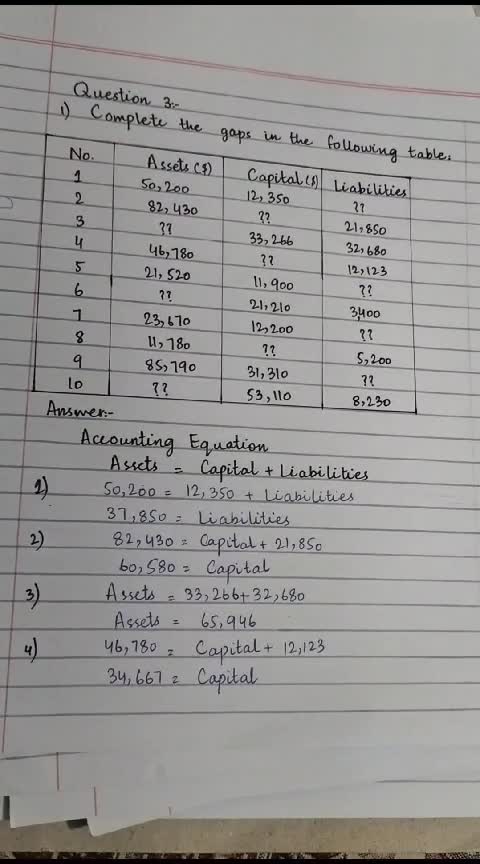 Question 3:-
1) Complete the gaps in the following table.
No. Assets($) Capital($) Liabilities
1 50,200 12,350 ??
2 82,430 ?? 21,850
3 ?? 33,266 32,680
4 46,780 ?? 12,123
5 21,520 11,900 ??
6 ?? 21,210 3,400
7 23,670 12,200 ??
8 11,780 ?? 5,200
9 85,790 31,310 ??
10 ?? 53,110 8,230
Answer:-
Accounting Equation
Assets = Capital + Liabilities
1) 50,200 = 12,350 + Liabilities
37,850 = Liabilities
2) 82,430 = Capital + 21,850
60,580 = Capital
3) Assets = 33,266 + 32,680
Assets = 65,946
4) 46,780 = Capital + 12,123
34,667 = Capital